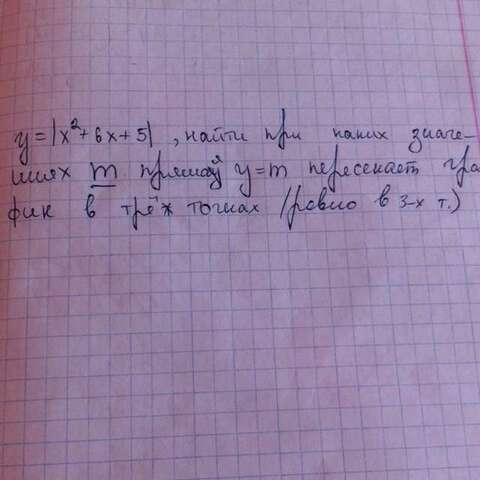 y=|x²+6x+5| , найти при каких значе-
ниях m прямая y=m пересекает гра
фик в трёх точках (ровно в 3-х т.)